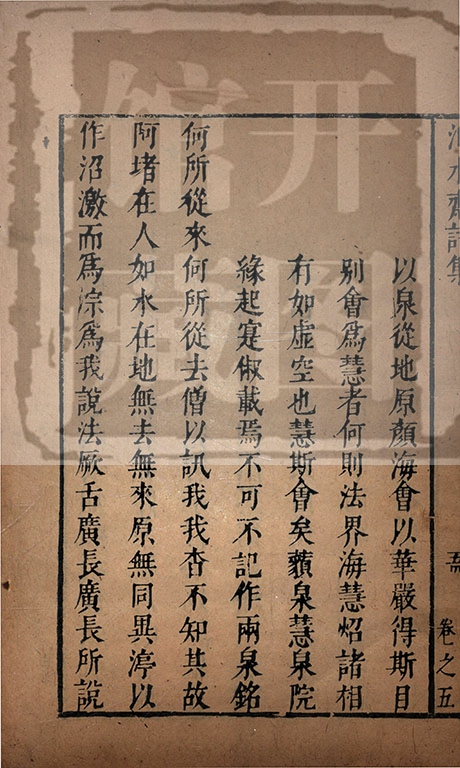 水齋詩集 卷之五
以泉從地原顏海會以華嚴得斯目
别會爲慧者何則法界海慧炤諸相
有如虛空也慧斯會矣泉慧泉院
緣起寔俶載焉不可不記作兩泉銘
何所從來何所從去僧以訊我我杳不知其故
阿堵在人如水在地無去無來原無同異渟以
作沼激而爲淙爲我說法厥舌廣長廣長所說
开圖
馆藏